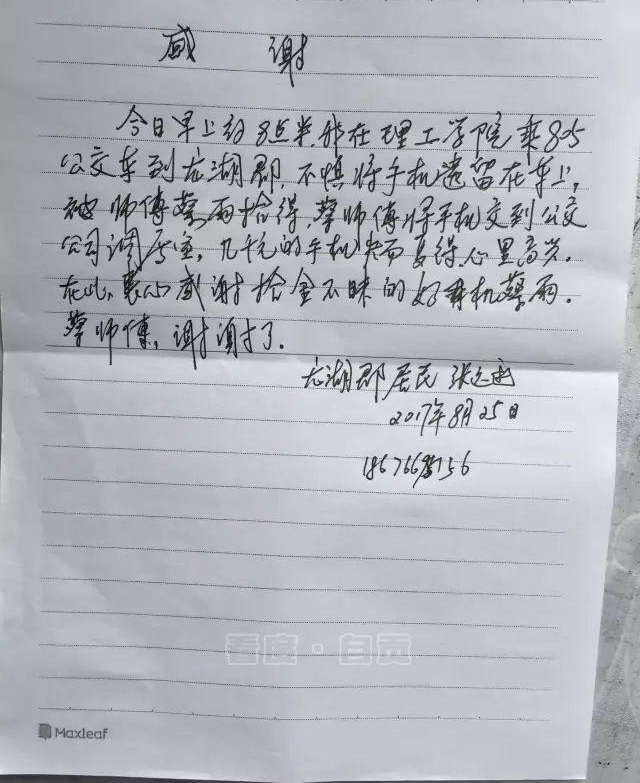 感 谢
今日早上约8点半,我在理工学院乘805
公交车到龙湖郡,不慎将手机遗留在车上,
被师傅蔡雨拾得,蔡师傅将手机交到公交
公司调度室,几千元的手机失而复得,心里高兴。
在此,衷心感谢拾金不昧的好司机蔡雨。
蔡师傅,谢谢了。
龙湖郡居民 张
2017年8月25日
看度·自贡
Maxleaf